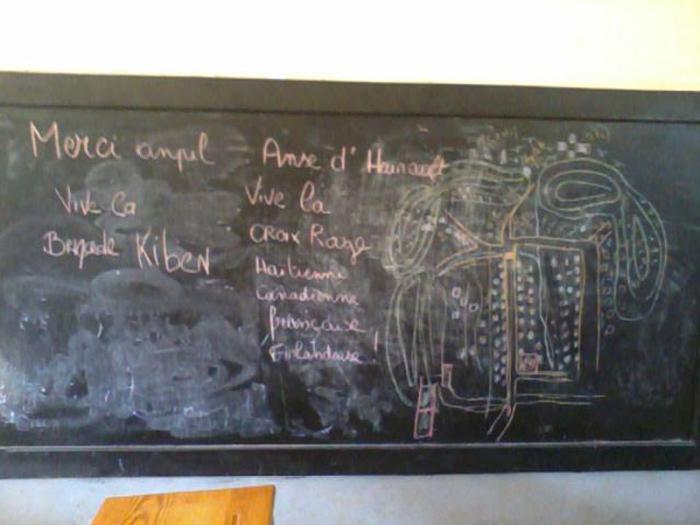 Merci anpil
Vive la
Brigade KibeN
Anse d'Hainault
Vive la
CROIX Rouge
Haïtienne
Canadienne
Française
Finlandaise!